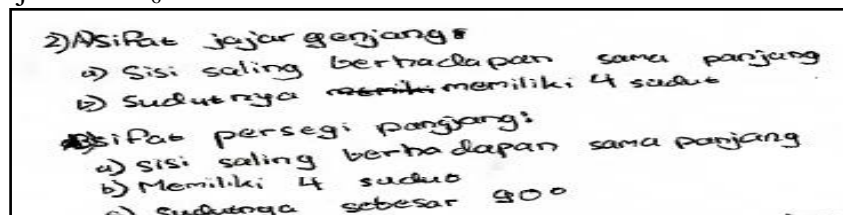 2) Sifat jajar genjang:
a) Sisi saling berhadapan sama panjang
b) Sudutnya memiliki 4 sudut
Sifat persegi panjang:
a) Sisi saling berhadapan sama panjang
b) Memiliki 4 sudut
c) Sudutnya sebesar 90°